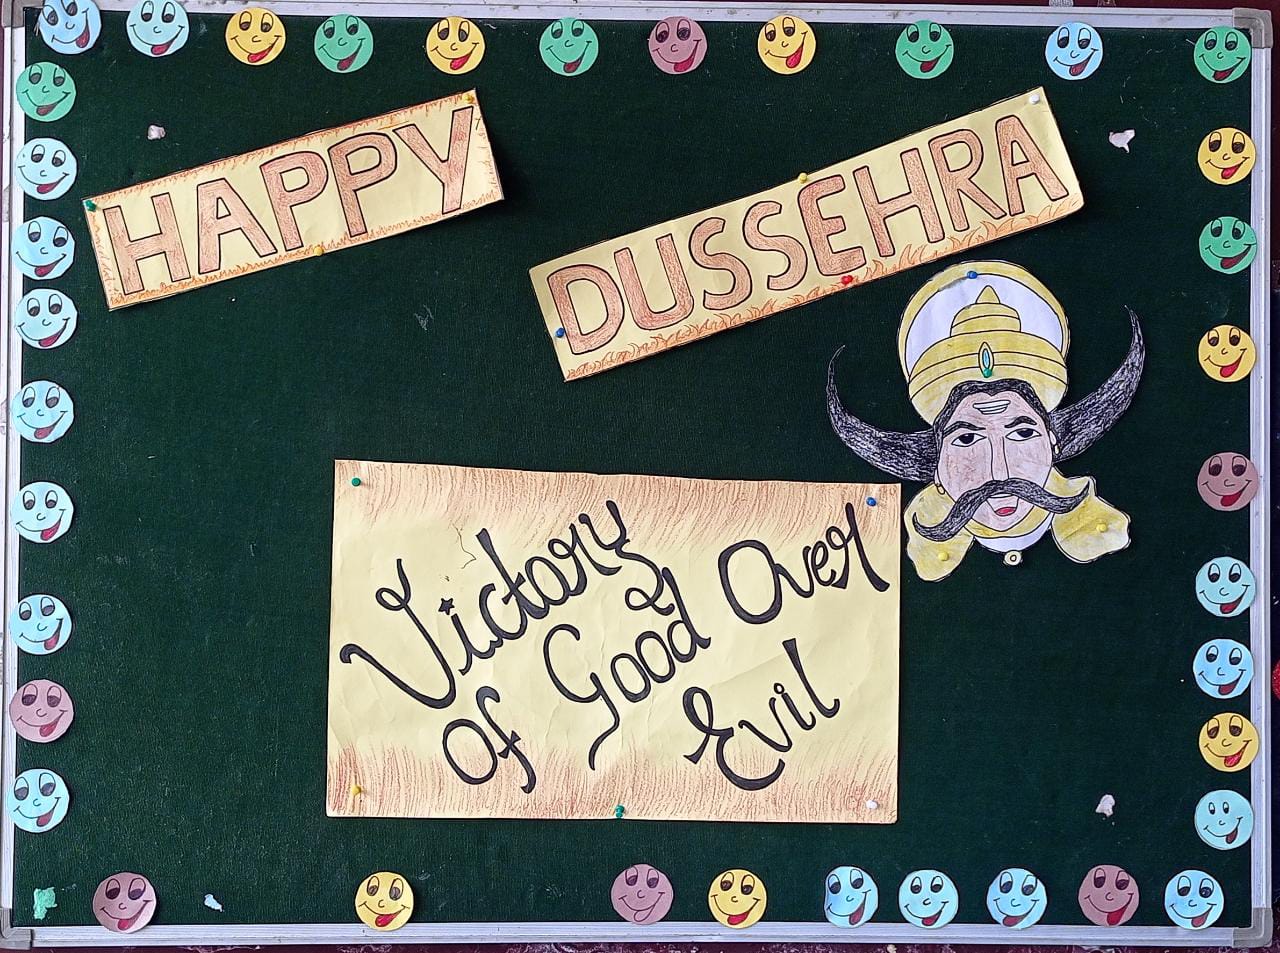 HAPPY
DUSSEHRA
Victory
of Good Over
Evil